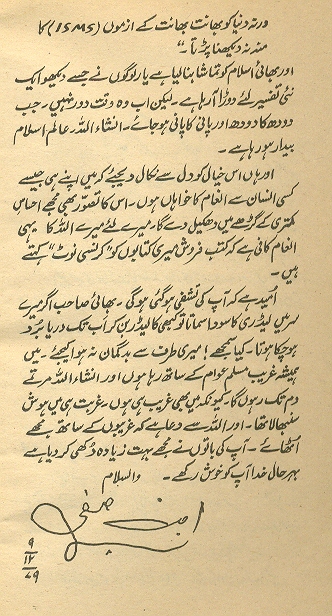 ورنہ دنیا کو بھانت بھانت کے ازموں (ISMS) کا
منہ نہ دیکھنا پڑتا۔"
اور بھائی اسلام کو تماشا بنا لیا ہے یار لوگوں نے جسے دیکھو ایک
نئی تفسیر لئے دوڑا آ رہا ہے۔ لیکن اب وہ وقت دور نہیں۔ جب
دودھ کا دودھ اور پانی کا پانی ہو جائے۔ انشاء اللہ عالم اسلام
بیدار ہو رہا ہے۔
اور ہاں اس خیال کو دل سے نکال دیجئے کہ میں اپنے ہی جیسے
کسی انسان سے انعام کا خواہاں ہوں۔ اس کا تصور بھی مجھے احساسِ
کمتری کے گڑھے میں دھکیل دے گا۔ میرے لئے میرے اللہ کا یہی
انعام کافی ہے کہ کتب فروش میری کتابوں کو "کرنسی نوٹ" کہتے
ہیں۔
اُمید ہے کہ آپ کی تشفی ہو گئی ہو گی۔ بھائی صاحب اگر میرے
سر میں لیڈری کا سودا سماتا تو کبھی کا لیڈر بن کر اب تک دریا بُرد
ہو چکا ہوتا۔ کیا سمجھے! میری طرف سے بدگمان نہ ہوا کیجئے۔ میں
ہمیشہ غریب مسلم عوام کے ساتھ رہا ہوں اور انشاء اللہ مرتے
دم تک رہوں گا۔ کیونکہ میں بھی غریب ہی ہوں۔ غربت ہی میں ہوش
سنبھالا تھا۔ اور اللہ سے دعا ہے کہ غریبوں کے ساتھ مجھے
اُٹھائے۔ آپ کی باتوں نے مجھے بہت زیادہ دُکھی کر دیا ہے
بہرحال خدا آپ کو خوش رکھے۔ والسلام
ابن صفی
۹
۱۲
۶۹